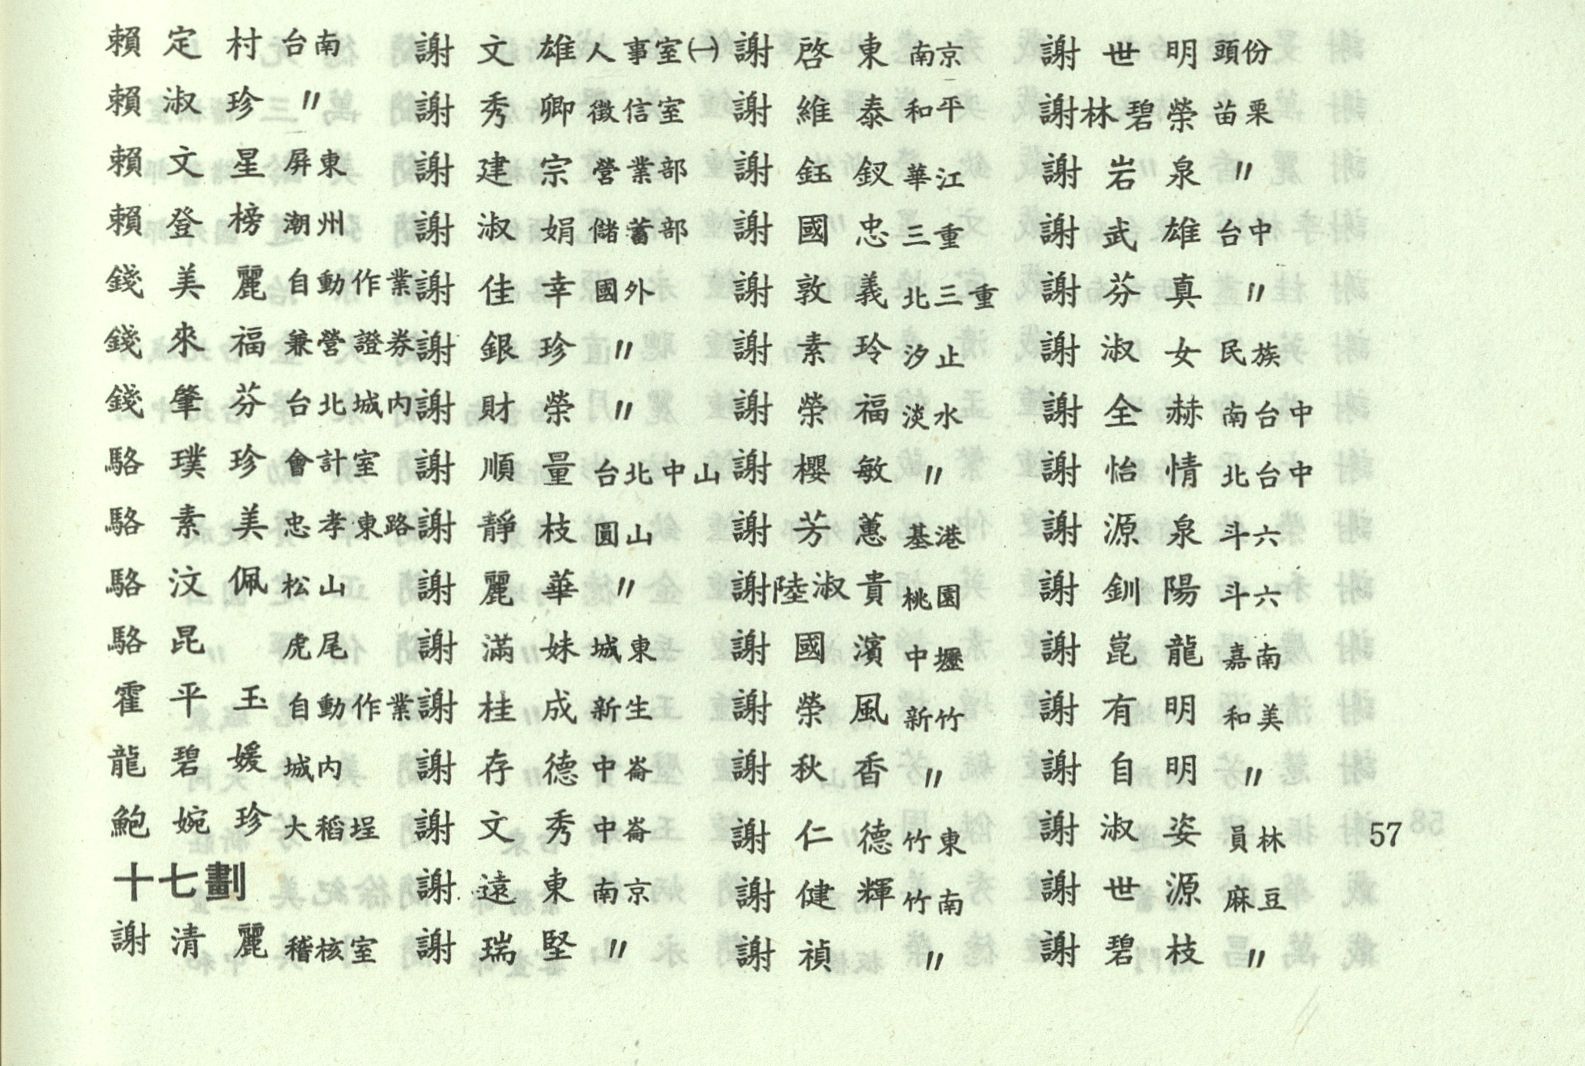 賴定村 台南
賴淑珍 〃
賴文星 屏東
賴登榜 潮州
錢美麗 自動作業
錢來福 兼營證券
錢肇芬 台北城內
駱璞珍 會計室
駱素美 忠孝東路
駱汶佩 松山
駱昆 虎尾
霍平玉 自動作業
龍碧媛 城內
鮑婉珍 大稻埕
十七劃
謝清麗 稽核室
謝文雄 人事室㈠
謝秀卿 徵信室
謝建宗 營業部
謝淑娟 儲蓄部
謝佳幸 國外
謝銀珍 〃
謝財榮 〃
謝順量 台北中山
謝靜枝 圓山
謝麗華 〃
謝滿妹 城東
謝桂成 新生
謝存德 中崙
謝文秀 中崙
謝遠東 南京
謝瑞堅 〃
謝啓東 南京
謝維泰 和平
謝鈺釵 華江
謝國忠 三重
謝敦義 北三重
謝素玲 汐止
謝榮福 淡水
謝櫻敏 〃
謝芳蕙 基港
謝陸淑貴 桃園
謝國濱 中壢
謝榮風 新竹
謝秋香 〃
謝仁德 竹東
謝健輝 竹南
謝禎 〃
謝世明 頭份
謝林碧榮 苗栗
謝岩泉 〃
謝武雄 台中
謝芬真 〃
謝淑女 民族
謝全赫 南台中
謝怡情 北台中
謝源泉 斗六
謝釧陽 斗六
謝崑龍 嘉南
謝有明 和美
謝自明 〃
謝淑姿 員林
謝世源 麻豆
謝碧枝 〃
57